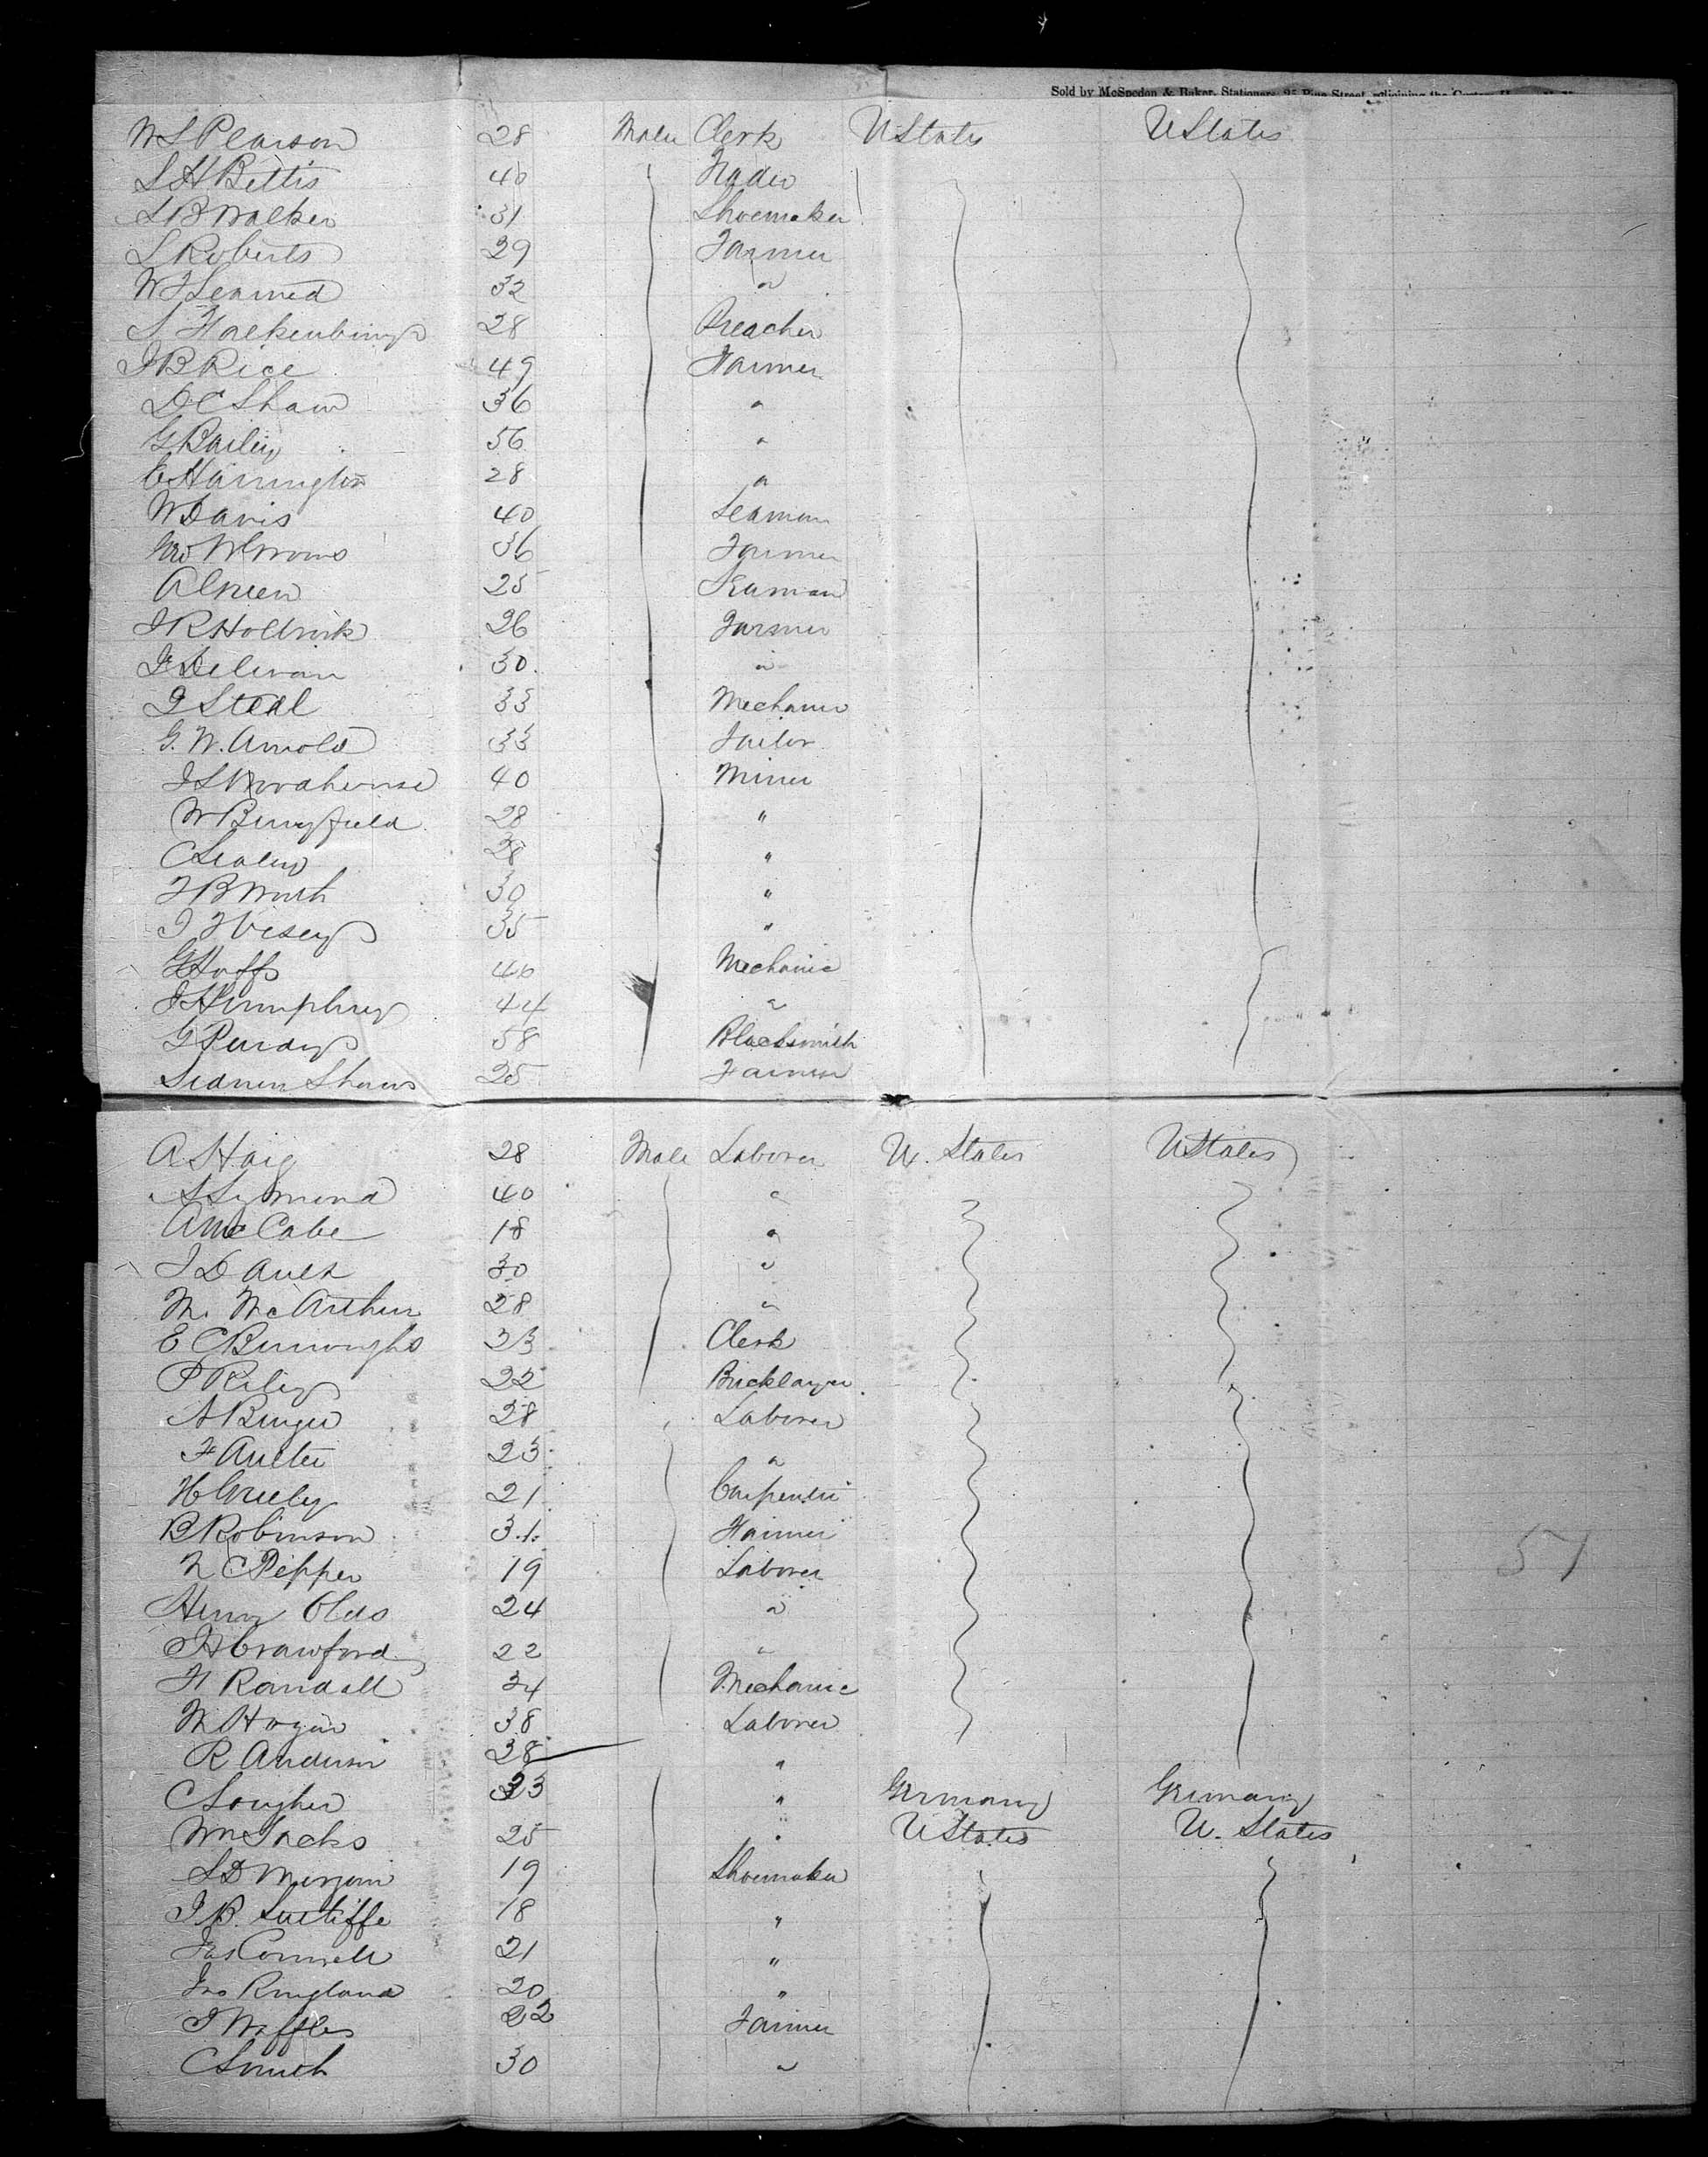 Sold by McSpedon & Baker, Stationers, 25 Pine Street, adjoining the Custom
W S Pearson 28 Male Clerk U States U States
S H Bettis 40 Trader
S B Walker 31 Shoemaker
S Roberts 29 Farmer
W F Learned 32 "
28 Preacher
J B Rice 49 Farmer
D C Shaw 36 "
G Bailey 56 "
E Harrington 28 "
W Davis 40 Seaman
Geo W 36 Farmer
A Green 25 Seaman
J R Holbrook 26 Farmer
J Delivan 30 "
J Steal 33 Mechanic
G. W. Arnold 33 Tailor
J S 40 Miner
W Bingfield 28 "
C Sealey 28 "
F B Worth 30 "
J 35 "
G Hoff 40 Mechanic
J Humphrey 44 "
G Purdy 58 Blacksmith
Shaws 25 Farmer
A Haig 28 Male Laborer U. States U States
A Symond 40 "
A McCabe 18 "
J D Ault 30 "
M. McArthur 28 "
E C Burroughs 23 Clerk
P Riley 22 Bricklayer
A Burger 28 Laborer
F 23 "
H Greely 21 Carpenter
B Robinson 31 Farmer
N C Pepper 19 Laborer
51
Henry Olds 24 "
H Crawford 22 "
H Randall 34 Mechanic
M Hogan 38 Laborer
R Anderson 38 "
C 23 " Germany Germany
Wm Jacks 25 " U States U. States
S D 19 Shoemaker
J B. Sutliffe 18 "
Jas Connell 21 "
Jno Ringland 20 "
J Waffles 22 Farmer
C Smith 30 "